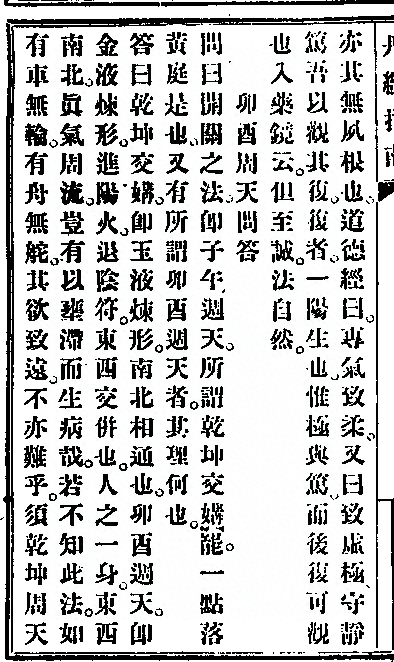 丹經指南
亦其無夙根也。道德經曰。專氣致柔。又曰致虛極。守靜
篤。吾以觀其復。復者。一陽生也。惟極與篤。而後復可觀
也。入藥鏡云。但至誠。法自然。
卯酉周天問答
問曰。開關之法。卽子午週天。所謂乾坤交媾罷。一點落
黃庭是也。又有所謂卯酉週天者。其理何也。
答曰。乾坤交媾。卽玉液煉形。南北相通也。卯酉週天。卽
金液煉形。進陽火。退陰符。東西交併也。人之一身。東西
南北。眞氣周流。豈有以壅滯而生病哉。若不知此法。如
有車無輪。有舟無舵。其欲致遠。不亦難乎。須乾坤周天